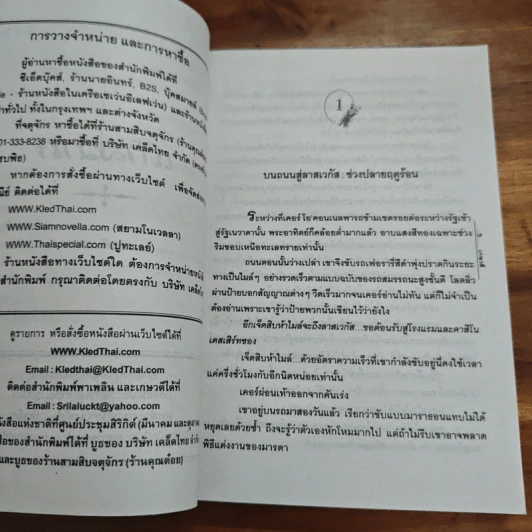 การวางจำหน่าย และการหาซื้อ
ผู้อ่านหาซื้อหนังสือของสำนักพิมพ์ได้ที่
ซีเอ็ดบุ๊คส์, ร้านนายอินทร์, B2S, บุ๊คสมายล์
- ร้านหนังสือในเครือเซเว่นอีเลฟเว่น /
ทั่วไป ทั้งในกรุงเทพฯ และต่างจังหวัด
ที่จตุจักร หาซื้อได้ที่ร้านสามสิบจตุจักร
01-333-8238 หรือมาซื้อที่ บริษัท เคล็ดไทย จำกัด
หากต้องการสั่งซื้อผ่านทางเว็บไซต์
ติดต่อได้ที่
www.KledThai.com
www.Siamnovella.com (สยามโนเวลลา)
www.Thaispecial.com (ปูทะเลย์)
ร้านหนังสือทางเว็บไซต์ใด ต้องการจำหน่าย
สำนักพิมพ์ กรุณาติดต่อโดยตรงกับ บริษัท
ดูรายการ หรือสั่งซื้อหนังสือผ่านเว็บไซต์ได้ที่
www.KledThai.com
Email : Kledthai@KledThai.com
ติดต่อสำนักพิมพ์พาเพลิน และเกษวดีได้ที่
Email : Srilaluckt@yahoo.com
แห่งชาติที่ศูนย์ประชุมสิริกิต์ (มีนาคม และ
ของสำนักพิมพ์ได้ที่ บูธของ บริษัท เคล็ดไทย
และบูธของร้านสามสิบจตุจักร (ร้านคุณต๋อย)
1
บนถนนสู่ลาสเวกัส : ช่วงปลายฤดูร้อน
ระหว่างที่เคอร์ โอ'คอนเนลพารถข้ามเขตรอยต่อระหว่างรัฐเข้า
สู่รัฐเนวาดานั้น พระอาทิตย์ก็คล้อยต่ำมากแล้ว อาบแสงสีทองเฉพาะช่วง
ริมขอบเหนือทะเลทรายเท่านั้น
ถนนตอนนี้ว่างเปล่า เขาจึงขับรถเฟอรารี่สีดำพุ่งปราดกินระยะ
ทางเป็นไมล์ๆ อย่างรวดเร็วตามแบบฉบับของรถสมรรถนะสูงชั้นดี โลดลิ่ว
ผ่านป้ายบอกสัญญาณต่างๆ วืดเร็วมากจนเคอร์อ่านไม่ทัน แต่ก็ไม่จำเป็น
ต้องอ่านเพราะเขารู้ว่าป้ายพวกนั้นเขียนไว้ว่ายังไง
อีกเจ็ดสิบห้าไมล์จะถึงลาสเวกัส...ขอต้อนรับสู่โรงแรมและคาสิโน
เดสเสิร์ทซอง
เจ็ดสิบห้าไมล์...ด้วยอัตราความเร็วที่เขากำลังขับอยู่นี่คงใช้เวลา
แค่ครึ่งชั่วโมงกับอีกนิดหน่อยเท่านั้น
เคอร์ผ่อนเท้าออกจากคันเร่ง
เขาอยู่บนรถมาสองวันแล้ว เรียกว่าขับแบบมาราธอนแทบไม่ได้
หยุดเลยด้วยซ้ำ ถึงจะรู้ว่าตัวเองหักโหมมากไป แต่ถ้าไม่รีบเขาอาจพลาด
พิธีแต่งงานของมารดา